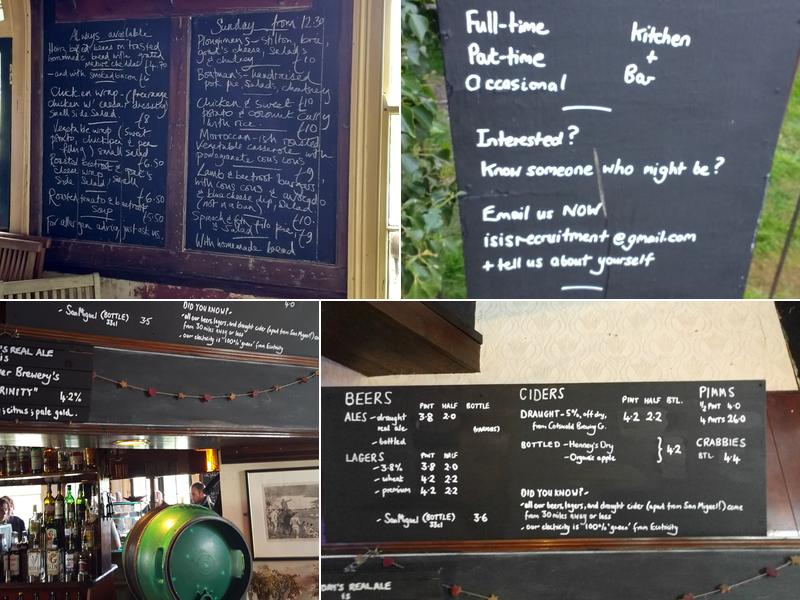 Always available
homemade bread with grated
mature cheddar £4.70
- and with smoked bacon £6
Chicken wrap - (free range
chicken w' caesar dressing)
small side salad £8
Vegetable wrap (sweet
potato, chickpea & pea
) small salad
£6.50
Roasted beetroot & goat's
cheese wrap, small
Side Salad
£6.50
Roast tomato &
Soup £5.50
For allergen advice, just ask us.
Sunday from 12.30
Ploughman's - Stilton, brie,
goat's cheese, salads
& chutney £10
Boatman's - handraised
pork pie, Salads, chutney
£10
Chicken & Sweet
potato & coconut curry
with rice £10
Morroccan-ish roasted
Vegetable casserole with
pomegranate cous cous
£9
Lamb & beetroot burgers
with cous cous & avocado
& blue cheese dip, salad
(not in a bun) £10.
Spinach & feta filo pie,
& Salad £9
With homemade bread
Full-time
Part-time
Occasional
Kitchen
+
Bar
Interested?
Know someone who might be?
Email us NOW
isisrecruitment@gmail.com
+ tell us about yourself
- San Miguel (BOTTLE) 3.5
33cl
4.0
DID YOU KNOW? -
- all our beers, lagers, and draught cider (apart from San Miguel!) co
from 30 miles away or less
- our electricity is '100% 'green' from Ecotricity
'S REAL ALE
IS
er Brewery's
RINITY" 4.2%
; citrus; pale gold.
BEERS
PINT HALF BOTTLE
ALES - draught 3.8 2.0
real ale
- bottled (VARIES)
LAGERS PINT HALF
- 3.8% 3.8 2.0
- wheat 4.2 2.2
- premium 4.2 2.2
- San Miguel (BOTTLE) 3.6
33cl
CIDERS
PINT HALF BTL.
DRAUGHT - 5%, off dry, 4.2 2.2
from Cotswold Brewing Co.
BOTTLED - Henney's Dry
- Organic apple } 4.2
PIMMS
½ PINT 4.0
4 PINTS 26.0
CRABBIES
BTL 4.4
DID YOU KNOW? -
- all our beers, lagers, and draught cider (apart from San Miguel!) come
from 30 miles away or less
- our electricity is '100% 'green' from Ecotricity
DAY'S REAL ALE
IS